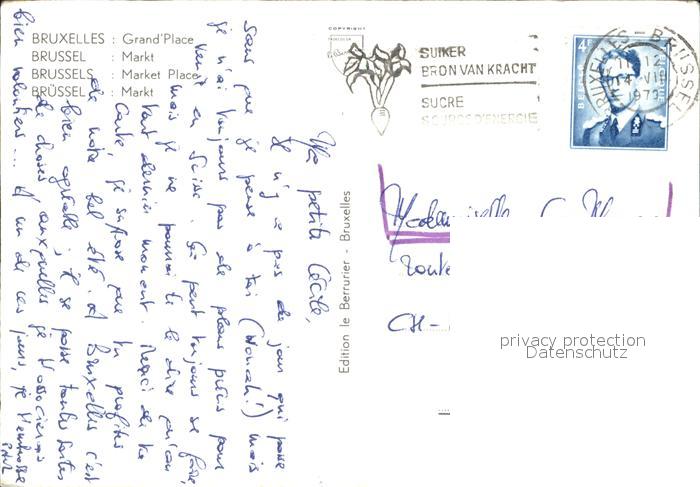 BRUXELLES : Grand'Place
BRUSSEL : Markt
BRUSSELS : Market Place
BRÜSSEL : Markt
COPYRIGHT
SUIKER
BRON VAN KRACHT
SUCRE
SOURCE D'ENERGIE
BRUXELLES BRUSSEL
12
1973
4F
Edition le Berrurier - Bruxelles
Ma petite Cécile,
Il n'y a pas de jour qui passe
sans que je pense à toi (Houah!) mais
je n'ai toujours pas de plans précis pour
venir en Suisse. Ça peut toujours se faire,
mais je ne pourrai te le dire qu'au
tout dernier moment. Merci de ta
carte, je suppose que tu profites
de notre bel été. A Bruxelles c'est
bien agréable; il se passe toutes sortes
de choses auxquelles je t'associerais
bien volontiers... A un de ces jours, je t'embrasse
Mademoiselle C.
Route
CH-
privacy protection
Datenschutz